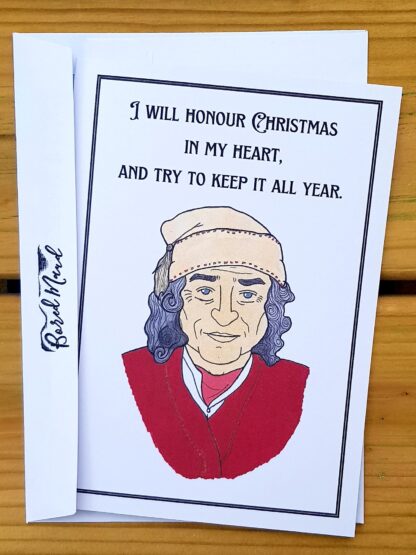 I WILL HONOUR CHRISTMAS
IN MY HEART,
AND TRY TO KEEP IT ALL YEAR.
Bored Mund